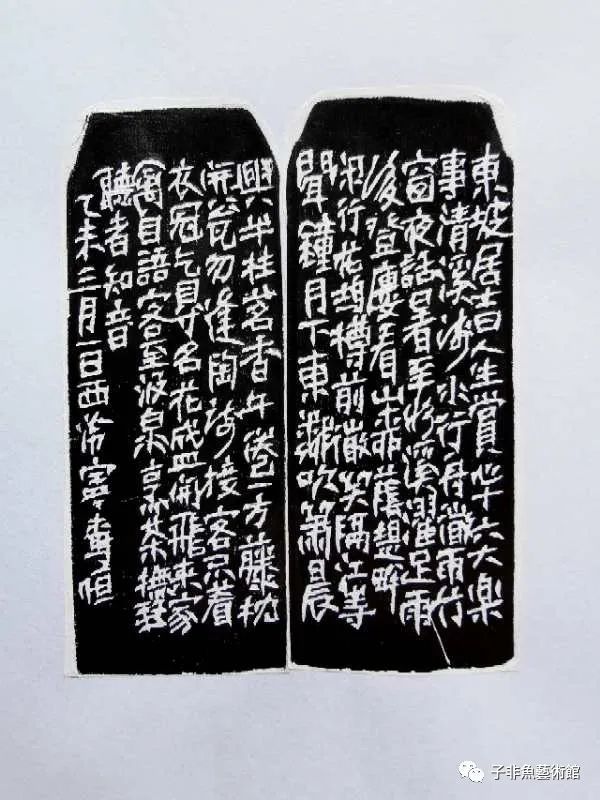 東坡居士曰人生賞心十六大樂
事清溪淺水行舟微雨竹
窗夜話暑至臨溪濯足雨
後登樓看山柳蔭堤畔
閑行花塢樽前微笑隔江寺
聞鐘月下東鄰吹簫晨
興半炷茗香午倦一方藤枕
開瓮勿逢陶謝接客不着
衣冠乞得名花盛開飛來家
禽自語客至汲泉烹茶撫琴
聽者知音
乙未三月一日西泠
子非魚藝術館